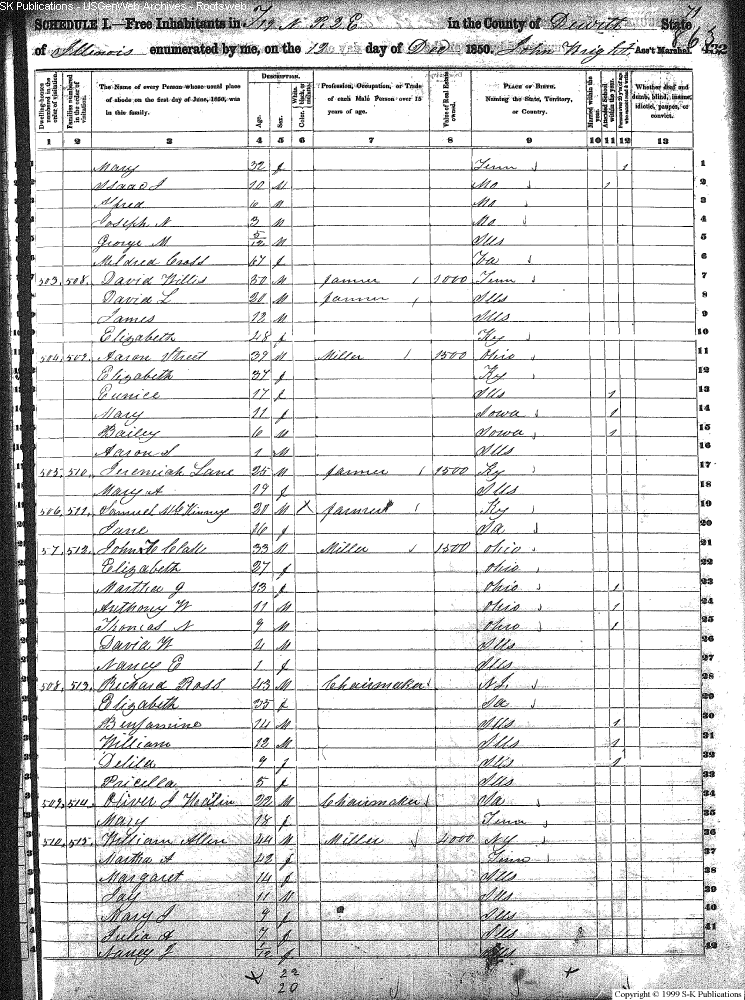 SK Publications - USGenWeb Archives - Rootsweb
SCHEDULE I.—Free Inhabitants in T 19 N R 2 E in the County of Dewitt State
of Illinois enumerated by me, on the 12 day of Dec 1850. John Wright Ass't Marshal. 432
863
Dwelling-houses numbered in the order of visitation.
Families numbered in the order of visitation.
The Name of every Person whose usual place of abode on the first day of June, 1850, was in this family.
DESCRIPTION.
Age.
Sex.
Color. White, black, or mulatto.
Profession, Occupation, or Trade of each Male Person over 15 years of age.
Value of Real Estate owned.
PLACE OF BIRTH. Naming the State, Territory, or Country.
Married within the year.
Attended School within the year.
Whether deaf and dumb, blind, insane, idiotic, pauper, or convict.
1 2 3 4 5 6 7 8 9 10 11 12 13
1 Mary 32 f Tenn 1 1
2 Isaac J 10 M Mo 1 2
3 Alfred 6 M Mo 3
4 Joseph N 3 M Mo 4
5 George M 5/12 M Ills 5
6 Mildred Cross 67 f Va 6
7 503 508 David Willis 50 M farmer 1000 Tenn 7
8 David L 20 M farmer Ills 8
9 James 12 M Ills 9
10 Elizabeth 48 f Ky 10
11 504 509 Aaron Street 39 M Miller 1500 Ohio 11
12 Elizabeth 37 f Ky 12
13 Eunice 17 f Ills 1 13
14 Mary 11 f Iowa 1 14
15 Bailey 6 M Iowa 1 15
16 Aaron S 1 M Ills 16
17 505 510 Jeremiah Lane 25 M farmer 1500 Ky 17
18 Mary A 19 f Ills 18
19 506 511 Samuel McKinney 20 M X farmer Ky 19
20 Jane 16 f 20
21 57 512 John H 33 M Miller 1500 Ohio 21
22 Elizabeth 27 f Ohio 22
23 Martha J 13 f Ohio 1 23
24 Anthony W 11 M Ohio 1 24
25 Thomas N 9 M Ohio 1 25
26 David W 4 M Ills 26
27 Nancy E 1 f Ills 27
28 508 513 Richard Ross 43 M Chairmaker N.J. 28
29 Elizabeth 35 f 29
30 Benjamine 14 M Ills 1 30
31 William 12 M Ills 1 31
32 Delila 9 f Ills 1 32
33 Pricella 5 f Ills 33
34 509 514 Oliver J 22 M Chairmaker 34
35 Mary 18 f Tenn 35
36 510 515 William Allen 44 M Miller 4000 N.Y 36
37 Martha A 42 f Tenn 37
38 Margaret 14 f Ills 38
39 Jay 11 M Ills 39
40 Mary J 9 f Ills 40
41 Julia A 7 f Ills 41
42 Nancy J 1/12 f Ills 42
22
20
Copyright © 1999 S-K Publications